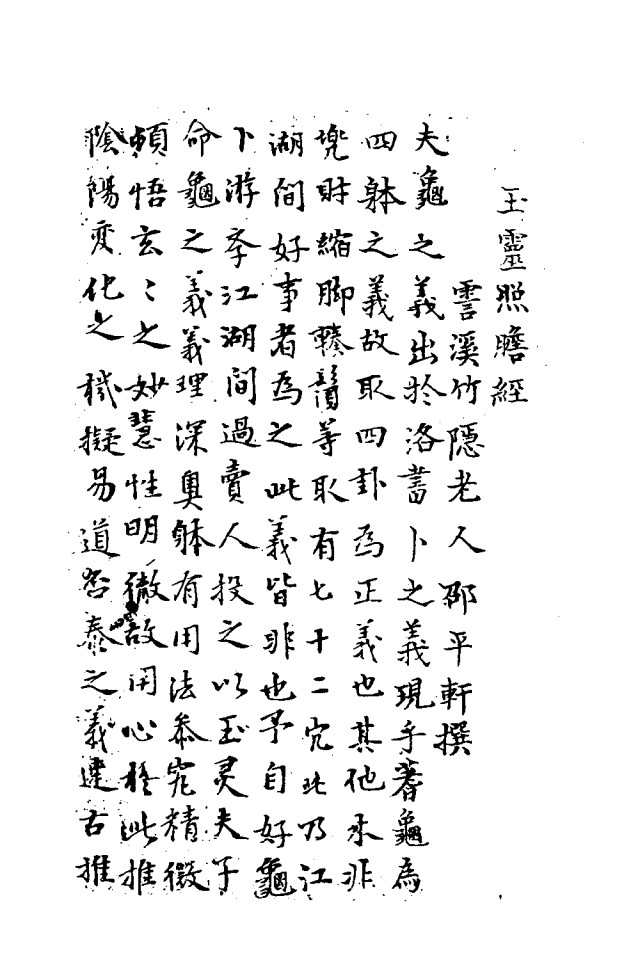 玉靈照瞻經
霅溪竹隱老人邵平軒撰
夫龜之義出於洛書卜之義現乎蓍龜為
四躰之義故取四卦為正義也其他未非
兠財縮脚轃鬚等取有七十二穴此乃江
湖間好事者為之此義皆非也予自好龜
卜游李江湖間過賣人投之以玉灵夫子
命龜之義義理深奥躰有用法叅究精微
頓悟玄〻之妙慧性明徹故用心于此推
陰陽变化之機擬易道否泰之義建古推